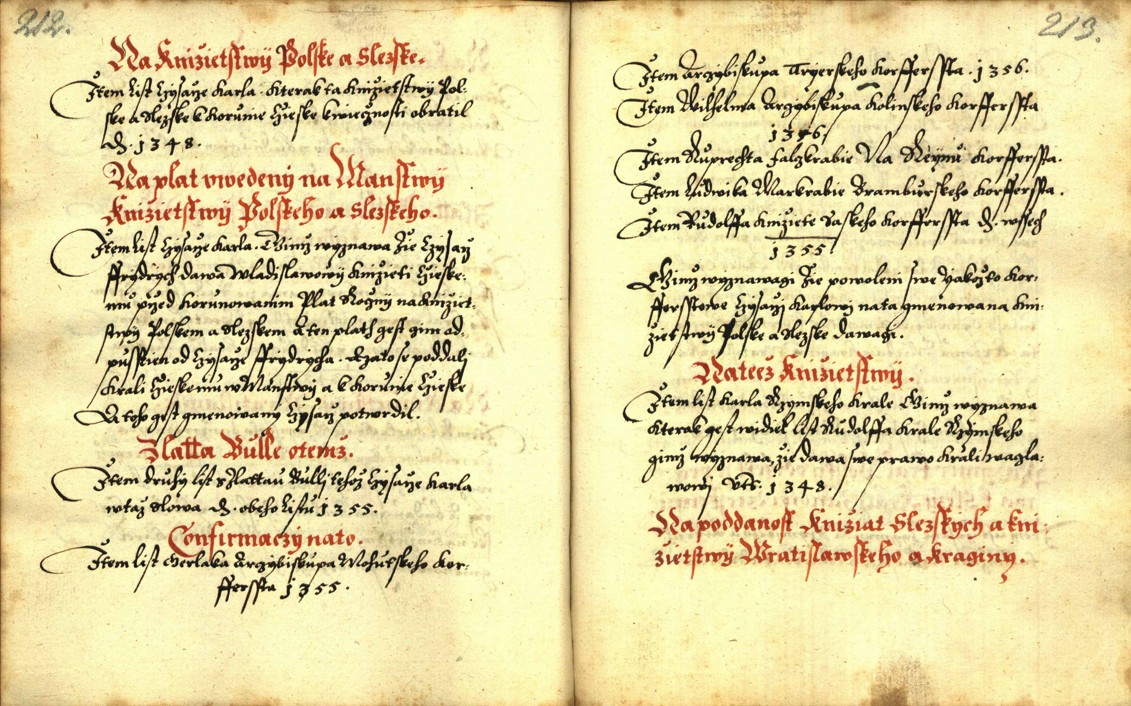 212.
Na Knizietstwij Polske a Slezske.
Item List Czysarze Karla. Kterak ta Knizietstwij Pol:
ske a Slezske k Korunie Czieske k wiecznosti obratil
D. 1348.
Na plat vwedeny na Manstwij
Knizietstwij Polskeho a Slezskeho.
Item List Czysarze Karla. Gimz wyznawa zie Czysarz
Ffrydrych dawa Wladislawowij Knizieti Czieske:
mu przed Korunowanim Plat Roczny na Knizet:
stwij Polskem a Slezskem a ten plath gest gim od
pusstien od Czysarze Ffrydrycha. A zato se poddalj
Krali Czieskemu w Manstwij a k Korunie Czieske
A toho gest gmenowany Czysarz potwrdil.
Zlatta Bulle otemz.
Item druhy list s Zlattau Bullj tehoz Czysarze Karla
w taz Slowa. D. obeho Listu 1355.
Confirmaczy na to.
Item list Gerlaka Arczybiskupa Mohutskeho Kor:
fferssta 1355.
213.
Item Arczybiskupa Tryerskeho Korfferssta. 1356.
Item Wilhelma Arczybiskupa Kolinskeho Korfferssta
Item Ruprechta Falzkrabie Na Reynu Korfferssta.
Item Ludwika Markrabie Bramburskeho Korfferssta.
Item Rudolffa Knizete Saskeho Korfferssta D. wssech
1355
Gimz wyznawagi zie powoleni swe yakozto Kor:
fferstowe Czysarzi Karlowi na ta gmenowana Kni:
zietstwij Polske a Slezske dawagi.
Na teez Knizietstwij.
Item list Karla Rzymskeho Krale Gimz wyznawa
Kterak gest widiel List Rudolffa Krale Rzymskeho
gimz wyznawa, zie dawa swe prawo Krali Wacla:
wowj Vts. 1348.
Na poddanost Knizat Slezskych a kni:
zietstwij Wratislawskeho a Kraginy.